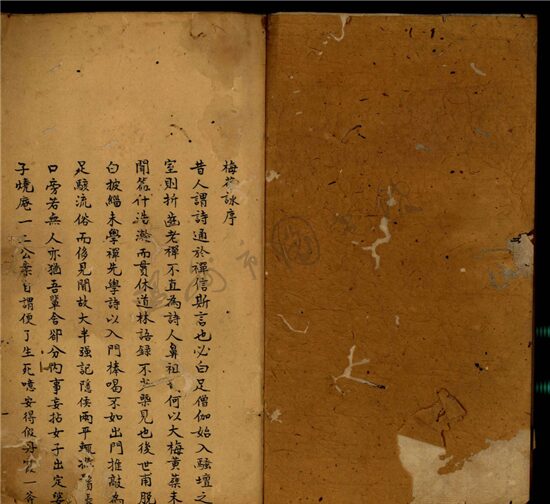 梅花詠序
昔人謂詩通於禪信斯言也必白足僧伽始入騷壇之
室則折疵老禪不直為詩人鼻祖何以大梅黃蘗未
聞篇什浩瀚而貫休道林語錄不少槩見也後世甫脫
白披緇未學禪先學詩以入門棒喝不如出門推敲為
足駭流俗而侈見聞故大半強記隨侯兩平
口旁若無人亦猶吾輩舍卻分內事妄拈女子出定婆
子燒庵一二公案自謂便了生死噫安得假丹霞一斧